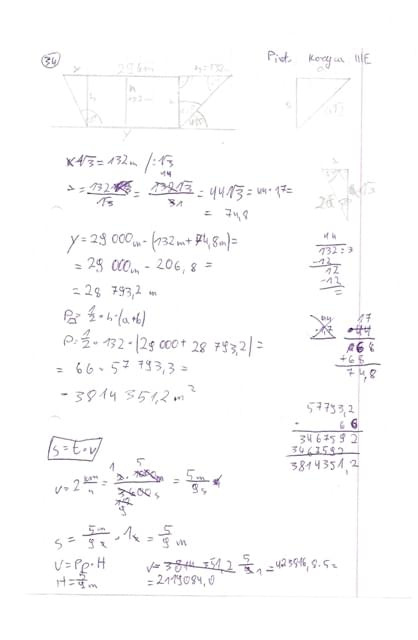 34
29 km
h = 132 m
Piotr Koryga IIIE
h
132 m
x
y
a
a
x√3 = 132 m /:√3
= 132√3 / √3 = 132√3 / 3 = 44√3 = 44·1,7 =
= 74,8
y = 29 000 m - (132 m + 74,8 m) =
= 29 000 m - 206,8 =
= 28 793,2 m
P = 1/2 · h · (a+b)
P = 1/2 · 132 · (29 000 + 28 793,2) =
= 66 · 57 793,3 =
- 3814 351,2 m²
44
132 : 3
-12
12
-12
=
44
17
17
·44
68
+68
74,8
57793,2
· 66
3467592
3467592
3814351,2
s = t · v
v = 2 km/h = = 5m/9s
s = 5m/9s · 1s = 5/9 m
V = Pp · H
H = 5/9 m
V = 3814 351,2 · 5/9 = 423816,8 · 5 =
= 2119084,0